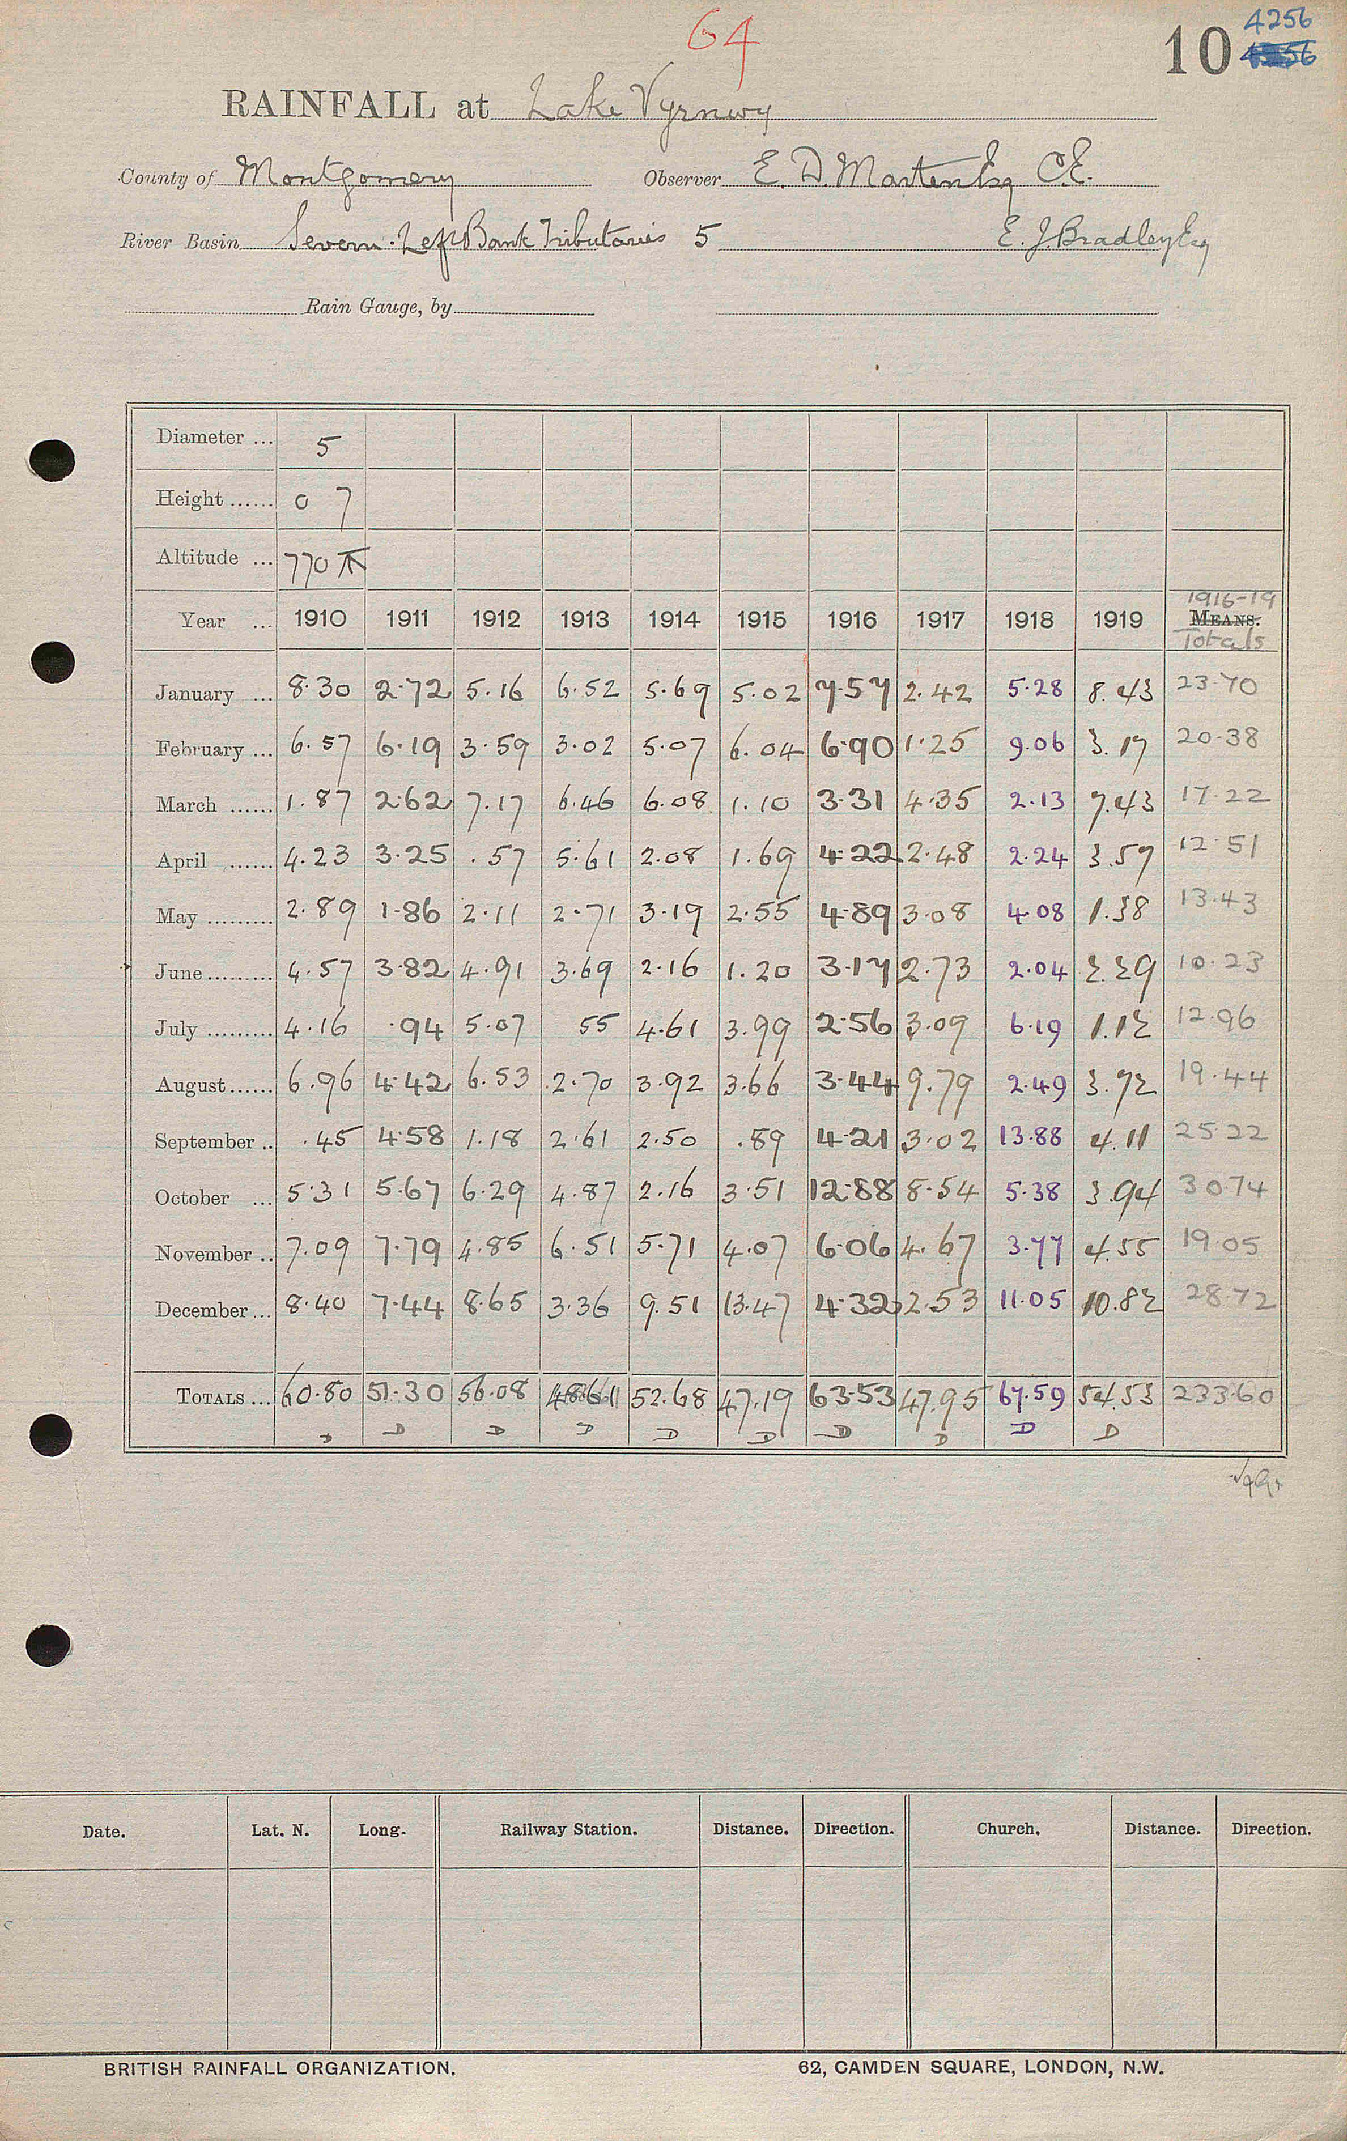 64
4256
10
RAINFALL at Lake Vyrnwy
County of Montgomery Observer E. D. Marten Esq C.E.
River Basin Severn. Left Bank Tributaries 5 E. J Bradley Esq
Rain Gauge, by
Diameter ... 5
Height ...... 0 7
Altitude ... 770
1916-19
Year ... 1910 1911 1912 1913 1914 1915 1916 1917 1918 1919 MEANS.
Totals
January ... 8.30 2.72 5.16 6.52 5.69 5.02 7.57 2.42 5.28 8.43 23.70
February ... 6.57 6.19 3.59 3.02 5.07 6.04 6.90 1.25 9.06 3.17 20.38
March ...... 1.87 2.62 7.17 6.46 6.08 1.10 3.31 4.35 2.13 7.43 17.22
April ...... 4.23 3.25 .57 5.61 2.08 1.69 4.22 2.48 2.24 3.57 12.51
May ......... 2.89 1.86 2.11 2.71 3.19 2.55 4.89 3.08 4.08 1.38 13.43
June ......... 4.57 3.82 4.91 3.69 2.16 1.20 3.17 2.73 2.04 2.29 10.23
July ......... 4.16 .94 5.07 55 4.61 3.99 2.56 3.09 6.19 1.12 12.96
August ...... 6.96 4.42 6.53 2.70 3.92 3.66 3.44 9.79 2.49 3.72 19.44
September .. .45 4.58 1.18 2.61 2.50 .89 4.21 3.02 13.88 4.11 25.22
October ... 5.31 5.67 6.29 4.87 2.16 3.51 12.88 8.54 5.38 3.94 30.74
November .. 7.09 7.79 4.85 6.51 5.71 4.07 6.06 4.67 3.77 4.55 19.05
December ... 8.40 7.44 8.65 3.36 9.51 13.47 4.32 2.53 11.05 10.82 28.72
TOTALS ... 60.80 51.30 56.08 48.61 52.68 47.19 63.53 47.95 67.59 54.53 233.60
D D D D D D D D D D
Date. Lat. N. Long. Railway Station. Distance. Direction. Church. Distance. Direction.
BRITISH RAINFALL ORGANIZATION. 62, CAMDEN SQUARE, LONDON, N.W.